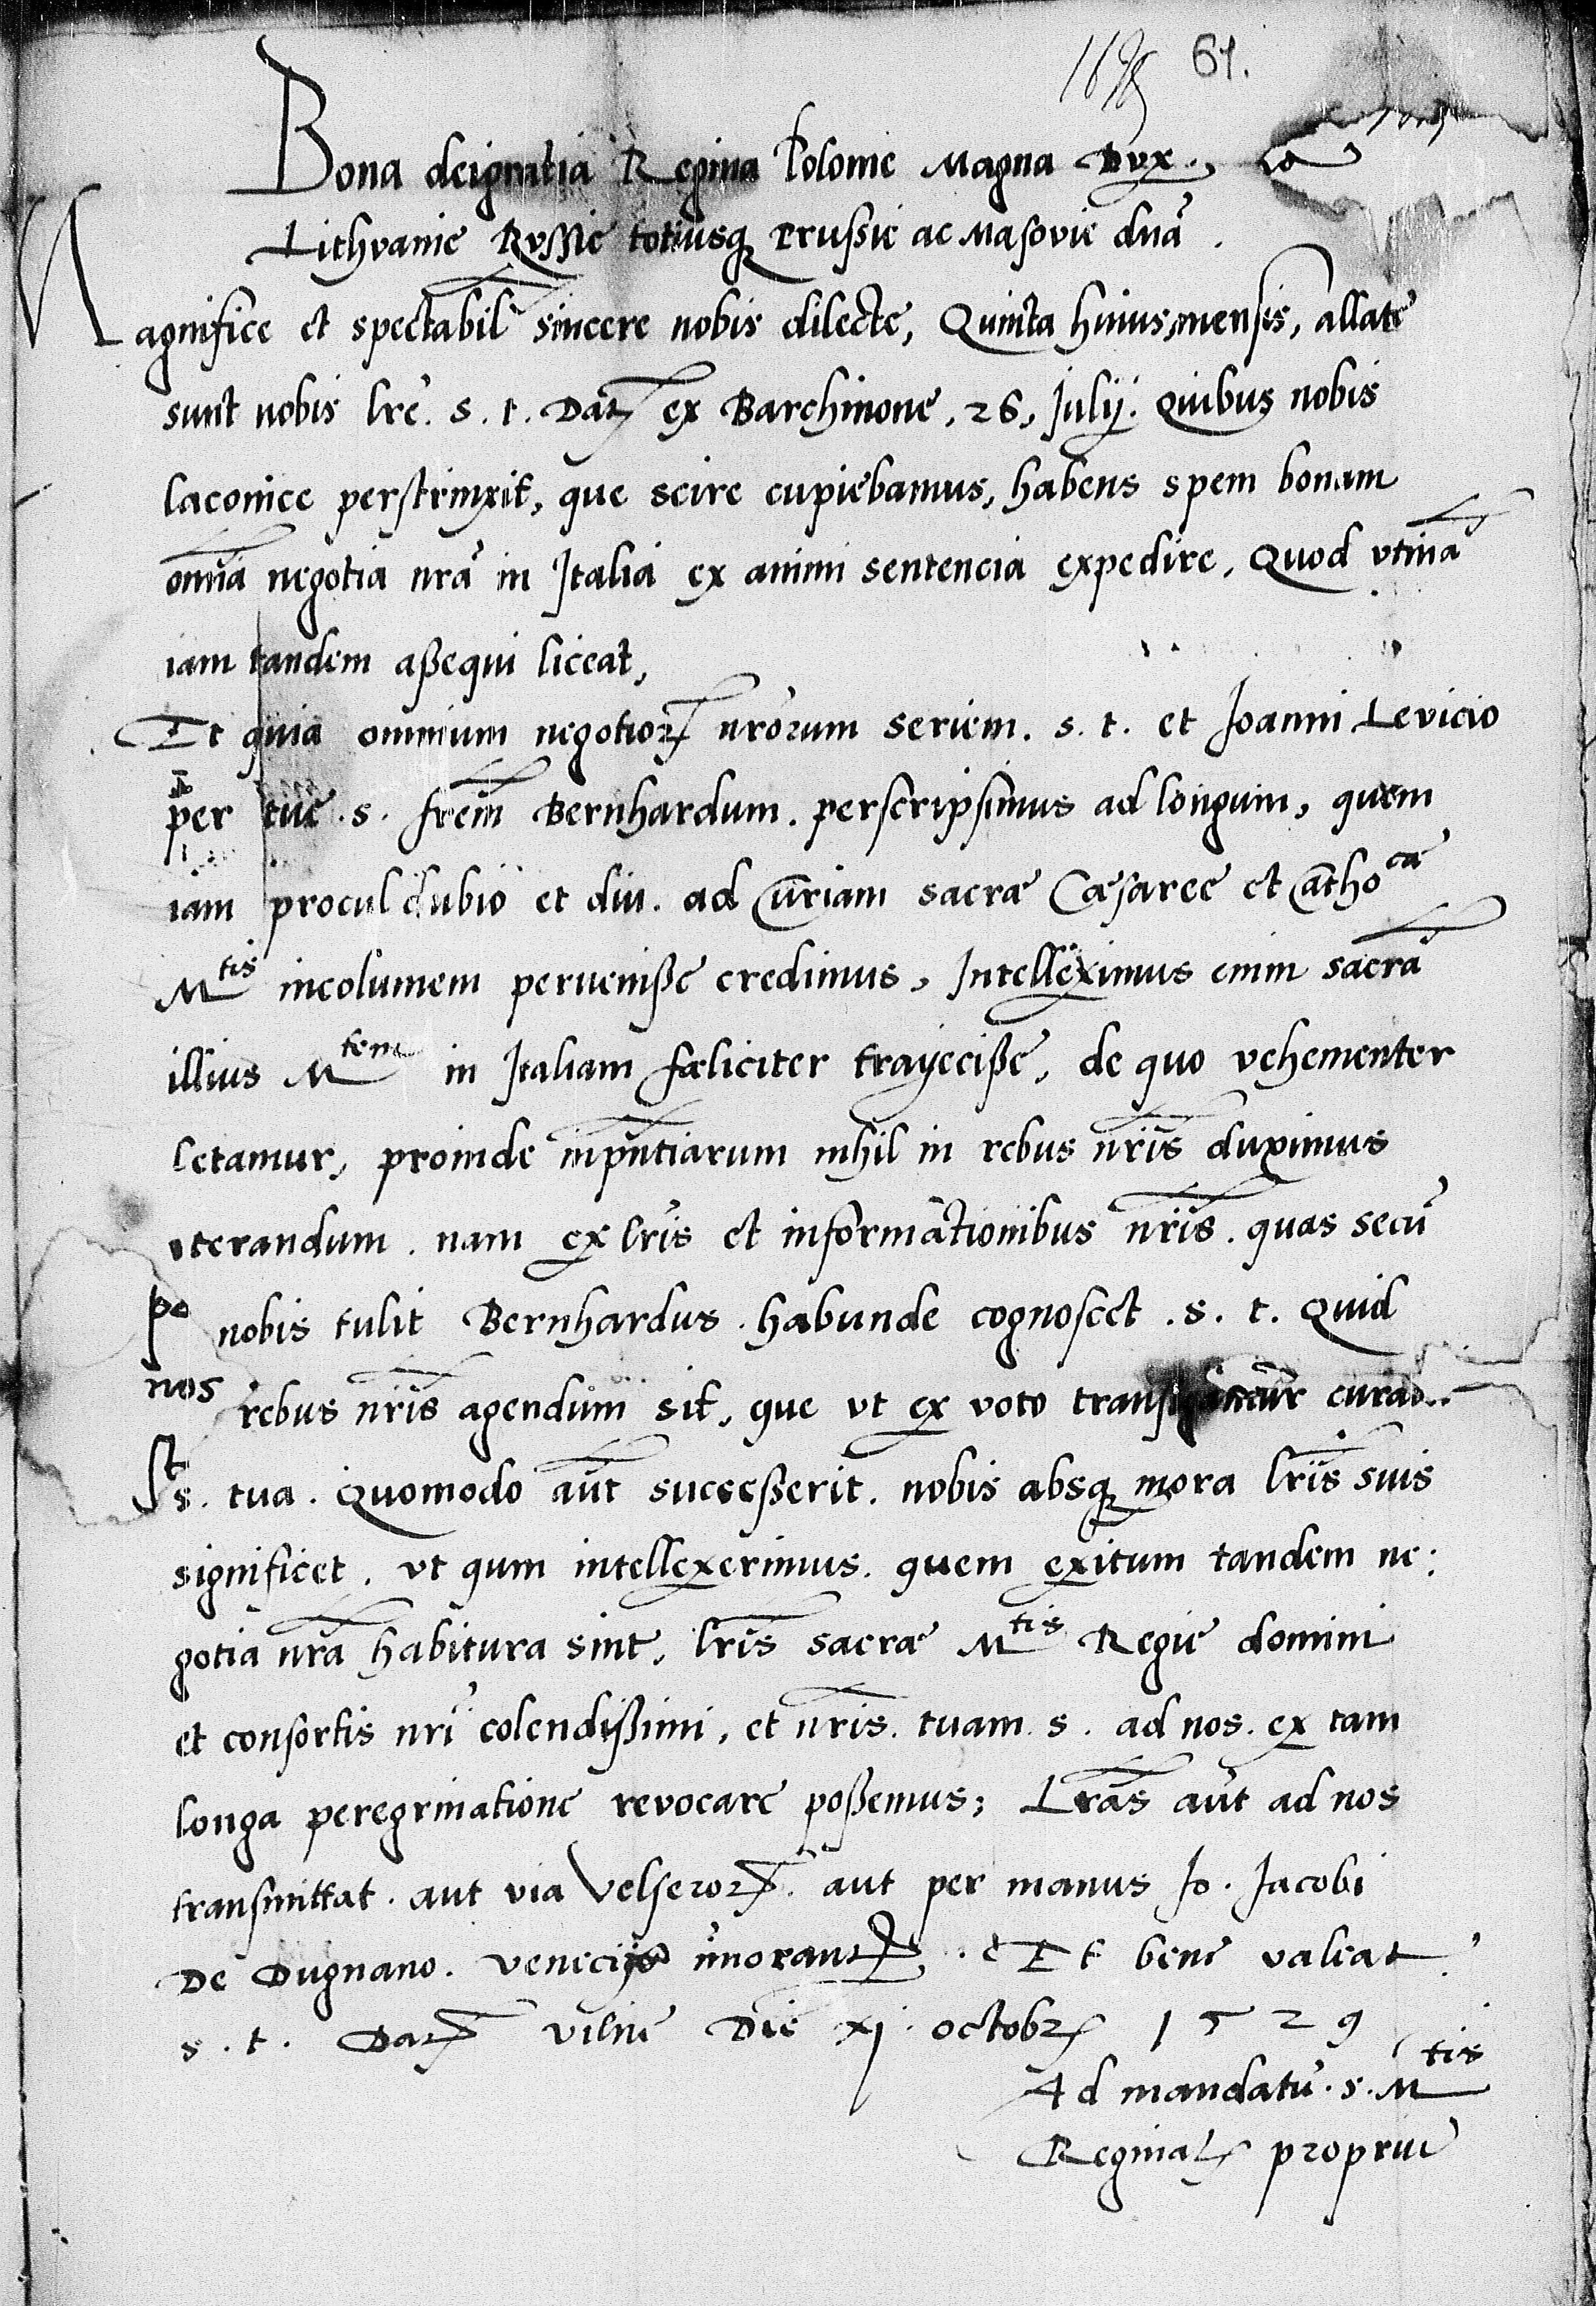 61.
Bona dei gratia Regina Polonie Magna Dux
Lithvanie Russie totiusq Prussie ac Masovie dna.
Magnifice et spectabil sincere nobis dilecte, Quinta huius mensis, allate
sunt nobis lre. s. t. Dat ex Barchinone, 26, Julij. Quibus nobis
laconice perstrinxit, que scire cupiebamus, habens spem bonam
omnia negotia nra in Italia ex animi sentencia expedire, Quod vtina
iam tandem assequi liceat,
Et quia omnium negotior nrorum seriem. s. t. et Joanni Levicio
per tue. s. frem Bernhardum. perscripsimus ad longum, quem
iam procul dubio et diu. ad Curiam sacræ Cæsaree et Catho cæ
M tis incolumem pervenisse credimus, Intelleximus enim sacra
illius M tem in Italiam fæliciter trajecisse, de quo vehementer
letamur, proinde inpntiarum nihil in rebus nris duximus
iterandum. nam ex lris et informationibus nris. quas secu
nobis tulit Bernhardus. habunde cognoscet. s. t. Quid
nos rebus nris agendum sit, que ut ex voto curad
s. tua. Quomodo aut successerit. nobis absq mora lris suis
significet. ut qum intellexerimus. quem exitum tandem ne:
gotia nra habitura sint, lris sacræ M tis Regie domini
et consortis nri colendissimi, et nris. tuam. s. ad nos. ex tam
longa peregrinatione revocare possemus; Lras aut ad nos
transmittat. aut via Velseror. aut per manus Jo. Jacobi
De Dugnano. Venecijs morant. Et bene valeat
s. t. Dat Vilne Die xj. octobr 1529
Ad mandatu. s. M tis
Reginal propriu